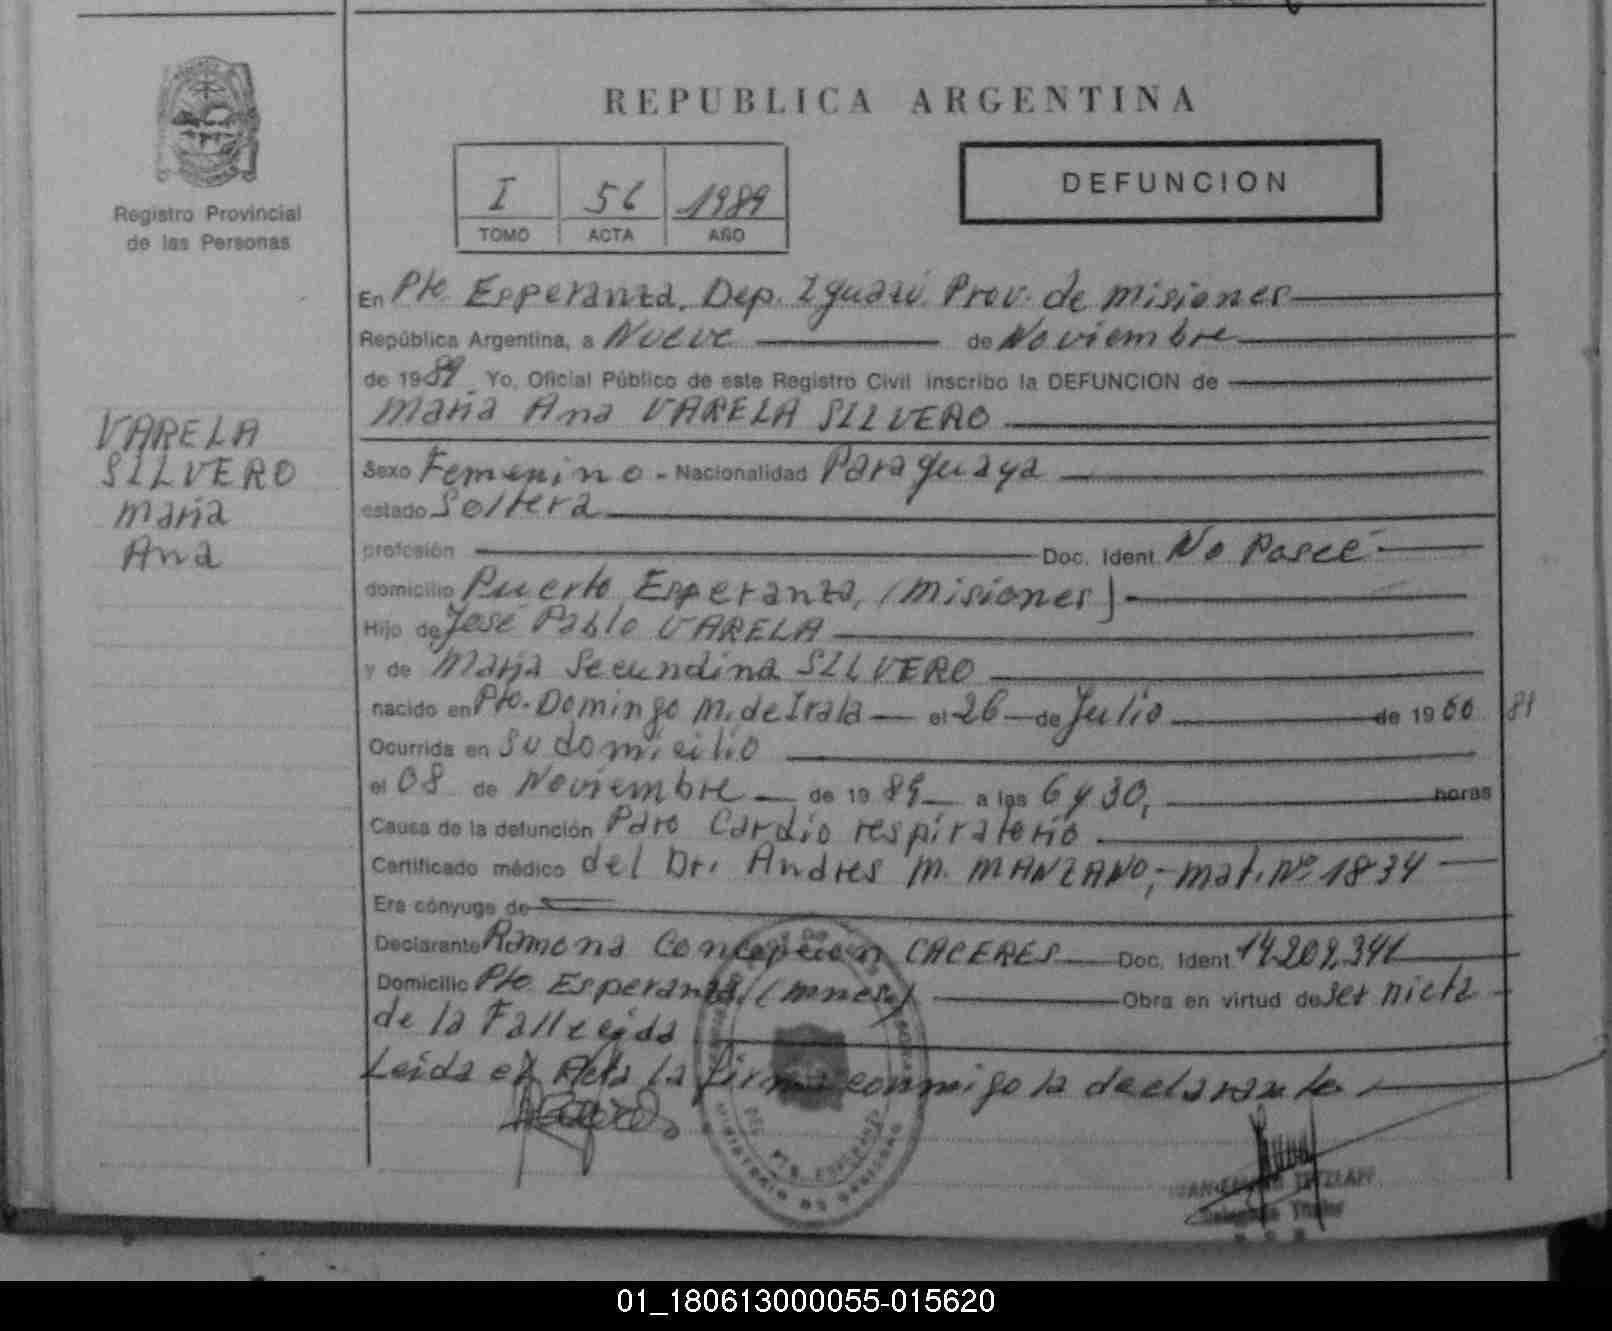 REPUBLICA ARGENTINA
Registro Provincial
de las Personas
I 56 1989
TOMO ACTA AÑO
DEFUNCION
VARELA
SILVERO
Maria
Ana
En Pto. Esperanza. Dep. Iguazú. Prov. de Misiones
República Argentina, a Nueve de Noviembre
de 1989 Yo, Oficial Público de este Registro Civil inscribo la DEFUNCION de
Maria Ana VARELA SILVERO
Sexo Femenino - Nacionalidad Paraguaya
estado Soltera
profesión Doc. Ident. No Poseé
domicilio Puerto Esperanza, (Misiones)
Hijo de José Pablo VARELA
y de Maria Secundina SILVERO
nacido en Pto. Domingo M. de Irala el 26 de Julio de 19
Ocurrida en su domicilio
el 08 de Noviembre de 1989 a las 6 y 30, horas
Causa de la defunción Paro Cardio respiratorio
Certificado médico del Dr. Andres M. MANZANO, - Mat. Nº 1834
Era cónyuge de
Declarante Ramona Concepcion CACERES Doc. Ident. 14.209.341
Domicilio Pto. Esperanza, (Mnes.) Obra en virtud de ser nieta
de la Fallecida
Leida el Acta la firma conmigo la declarante
PTO. ESPERANZA
MINISTERIO DE GOBIERNO
TETZLAFF
Titular
01_180613000055-015620